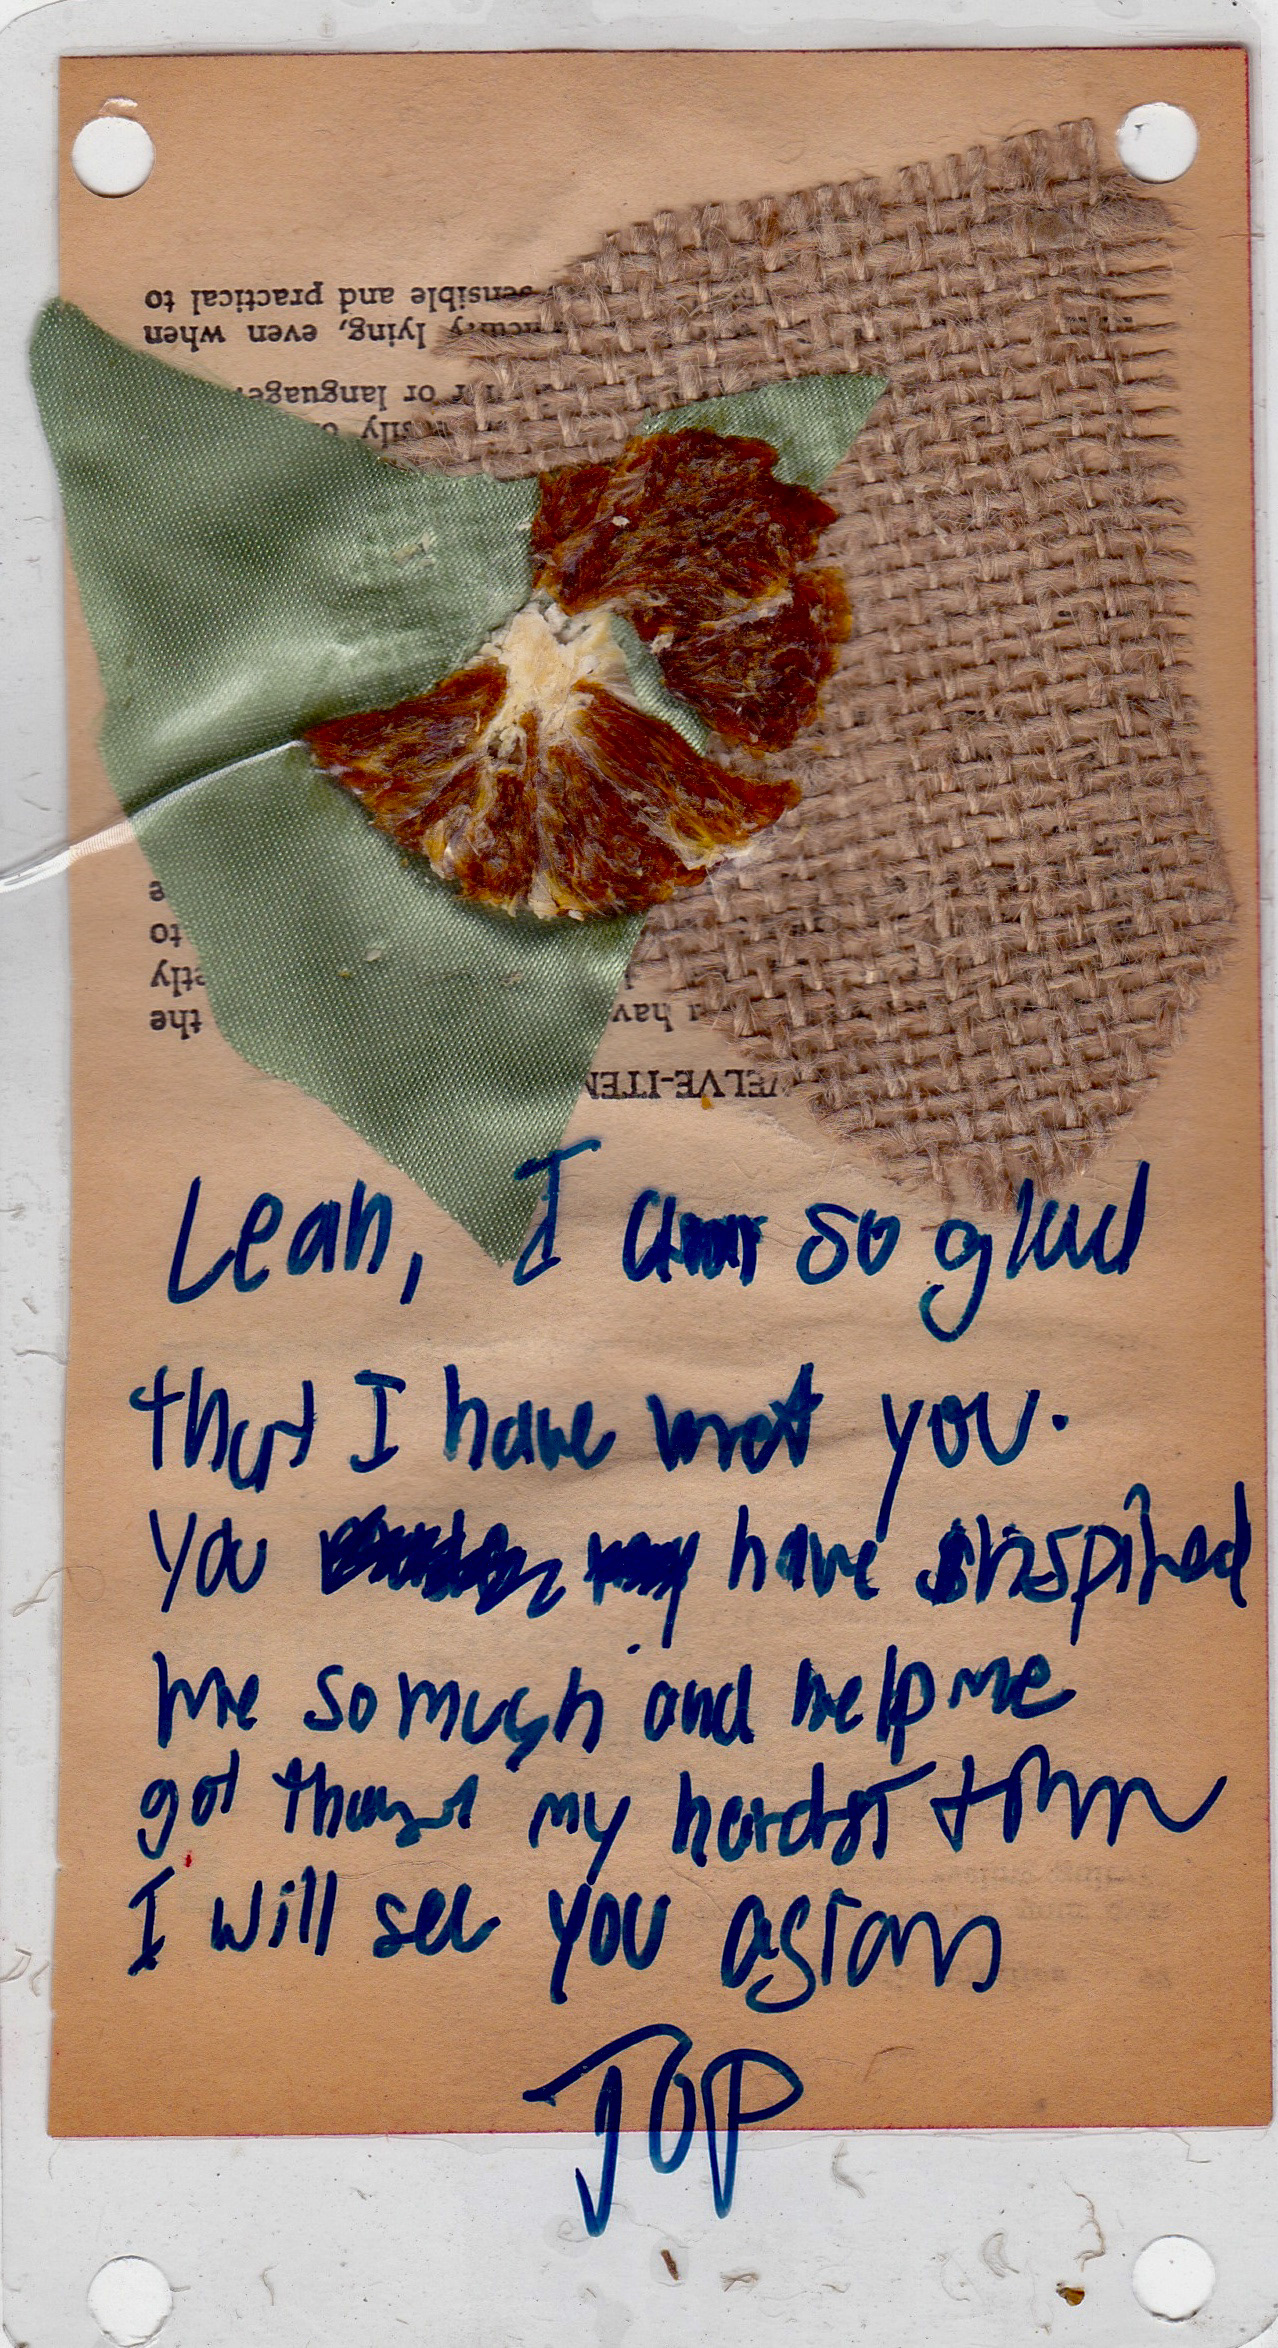 sensible and practical to
lying, even when
or language
the
have
to
ELVE-ITEM
Leah, I am so glad
that I have met you.
You have inspired
me so much and help me
got my hardst
I will see you
JOP